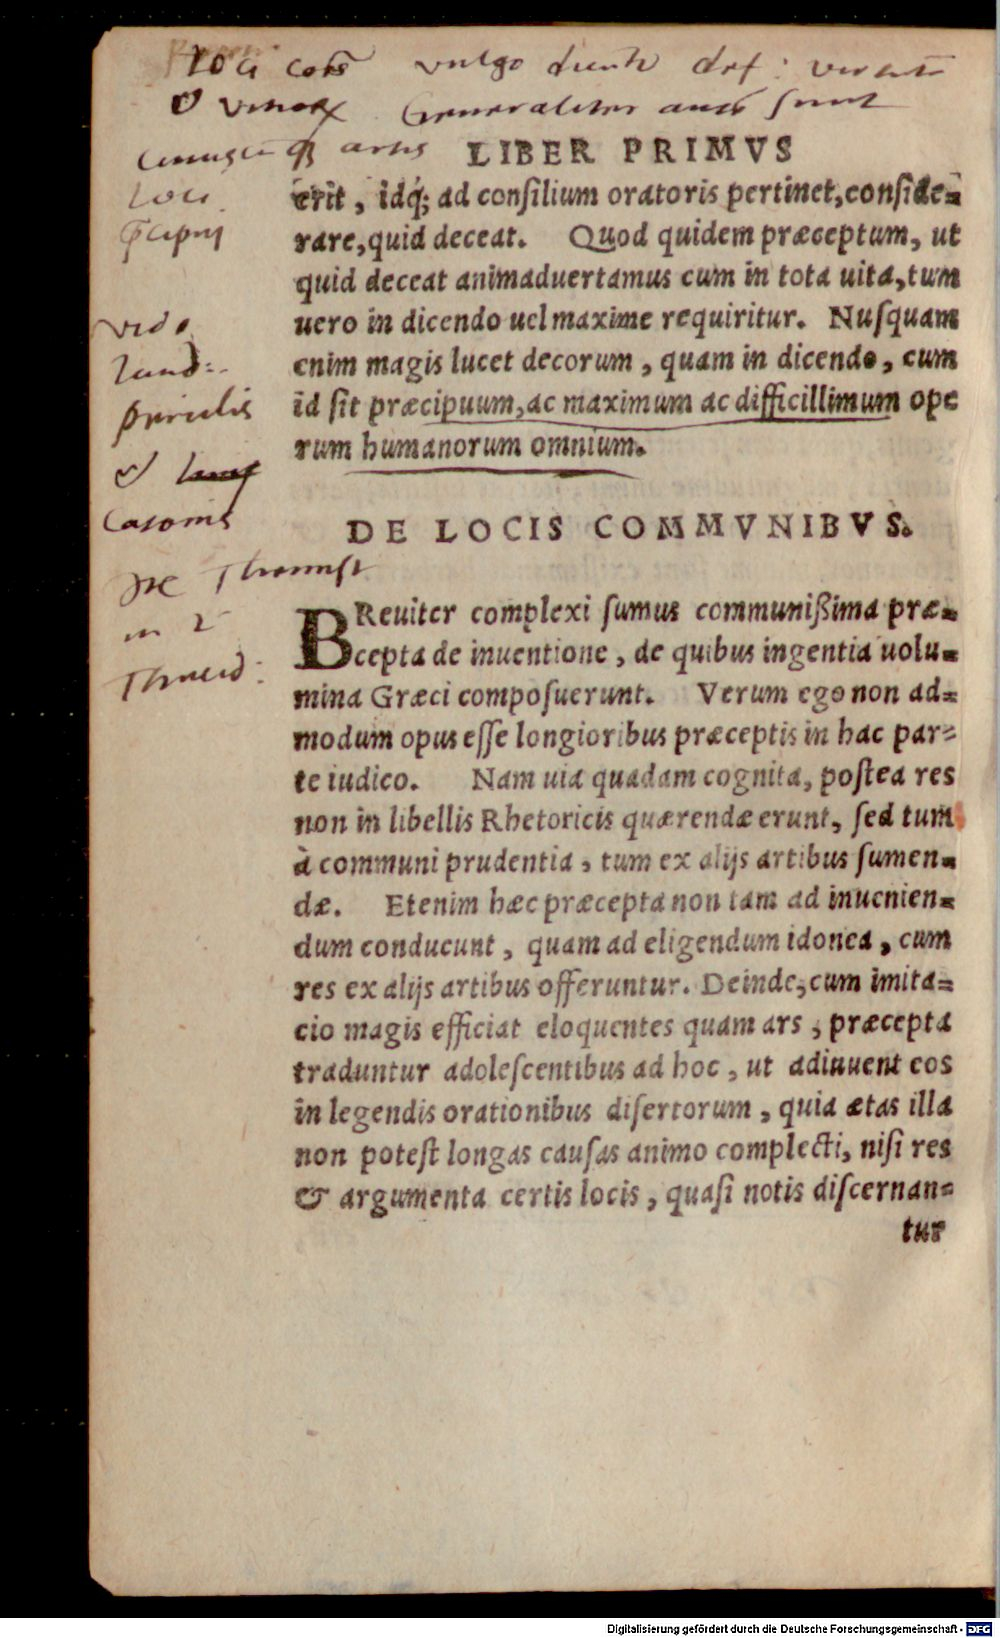 Loci cōēs vulgo
Generaliter sunt
artis
LIBER PRIMVS
Loci
erit, idq́; ad conſilium oratoris pertinet, conſide=
rare, quid deceat. Quod quidem præceptum, ut
quid deceat animaduertamus cum in tota uita, tum
uero in dicendo uel maxime requiritur. Nuſquam
enim magis lucet decorum, quam in dicendo, cum
id ſit præcipuum, ac maximum ac difficillimum ope
rum humanorum omnium.
DE LOCIS COMMVNIBVS.
in 2
BReuiter complexi ſumus communißima præ=
cepta de inuentione, de quibus ingentia uolu=
mina Græci compoſuerunt. Verum ego non ad=
modum opus eſſe longioribus præceptis in hac par=
te iudico. Nam uia quadam cognita, poſtea res
non in libellis Rhetoricis quærendæ erunt, ſed tum
à communi prudentia, tum ex alijs artibus ſumen=
dæ. Etenim hæc præcepta non tam ad inuenien=
dum conducunt, quam ad eligendum idonea, cum
res ex alijs artibus offeruntur. Deinde, cum imita=
cio magis efficiat eloquentes quam ars, præcepta
traduntur adoleſcentibus ad hoc, ut adiuuent eos
in legendis orationibus diſertorum, quia ætas illa
non poteſt longas cauſas animo complecti, niſi res
& argumenta certis locis, quaſi notis diſcernan=
tur
Digitalisierung gefördert durch die Deutsche Forschungsgemeinschaft - DFG